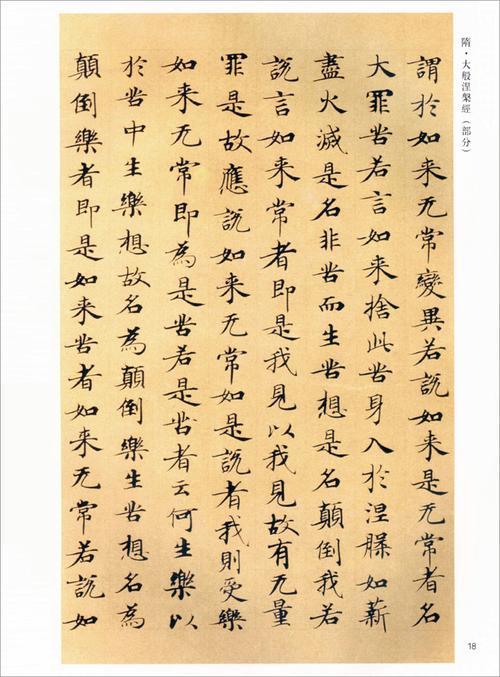 隋·大般涅槃經（部分）
謂於如来无常變異若説如来是无常者名
大罪苦若言如来捨此苦身入於涅槃如薪
盡火滅是名非苦而生苦想是名顛倒我若
説言如来常者即是我見以我見故有无量
罪是故應説如来无常如是説者我則受樂
如来无常即為是苦若是苦者云何生樂以
於苦中生樂想故名為顛倒樂生苦想名為
顛倒樂者即是如来苦者如来无常若説如
18